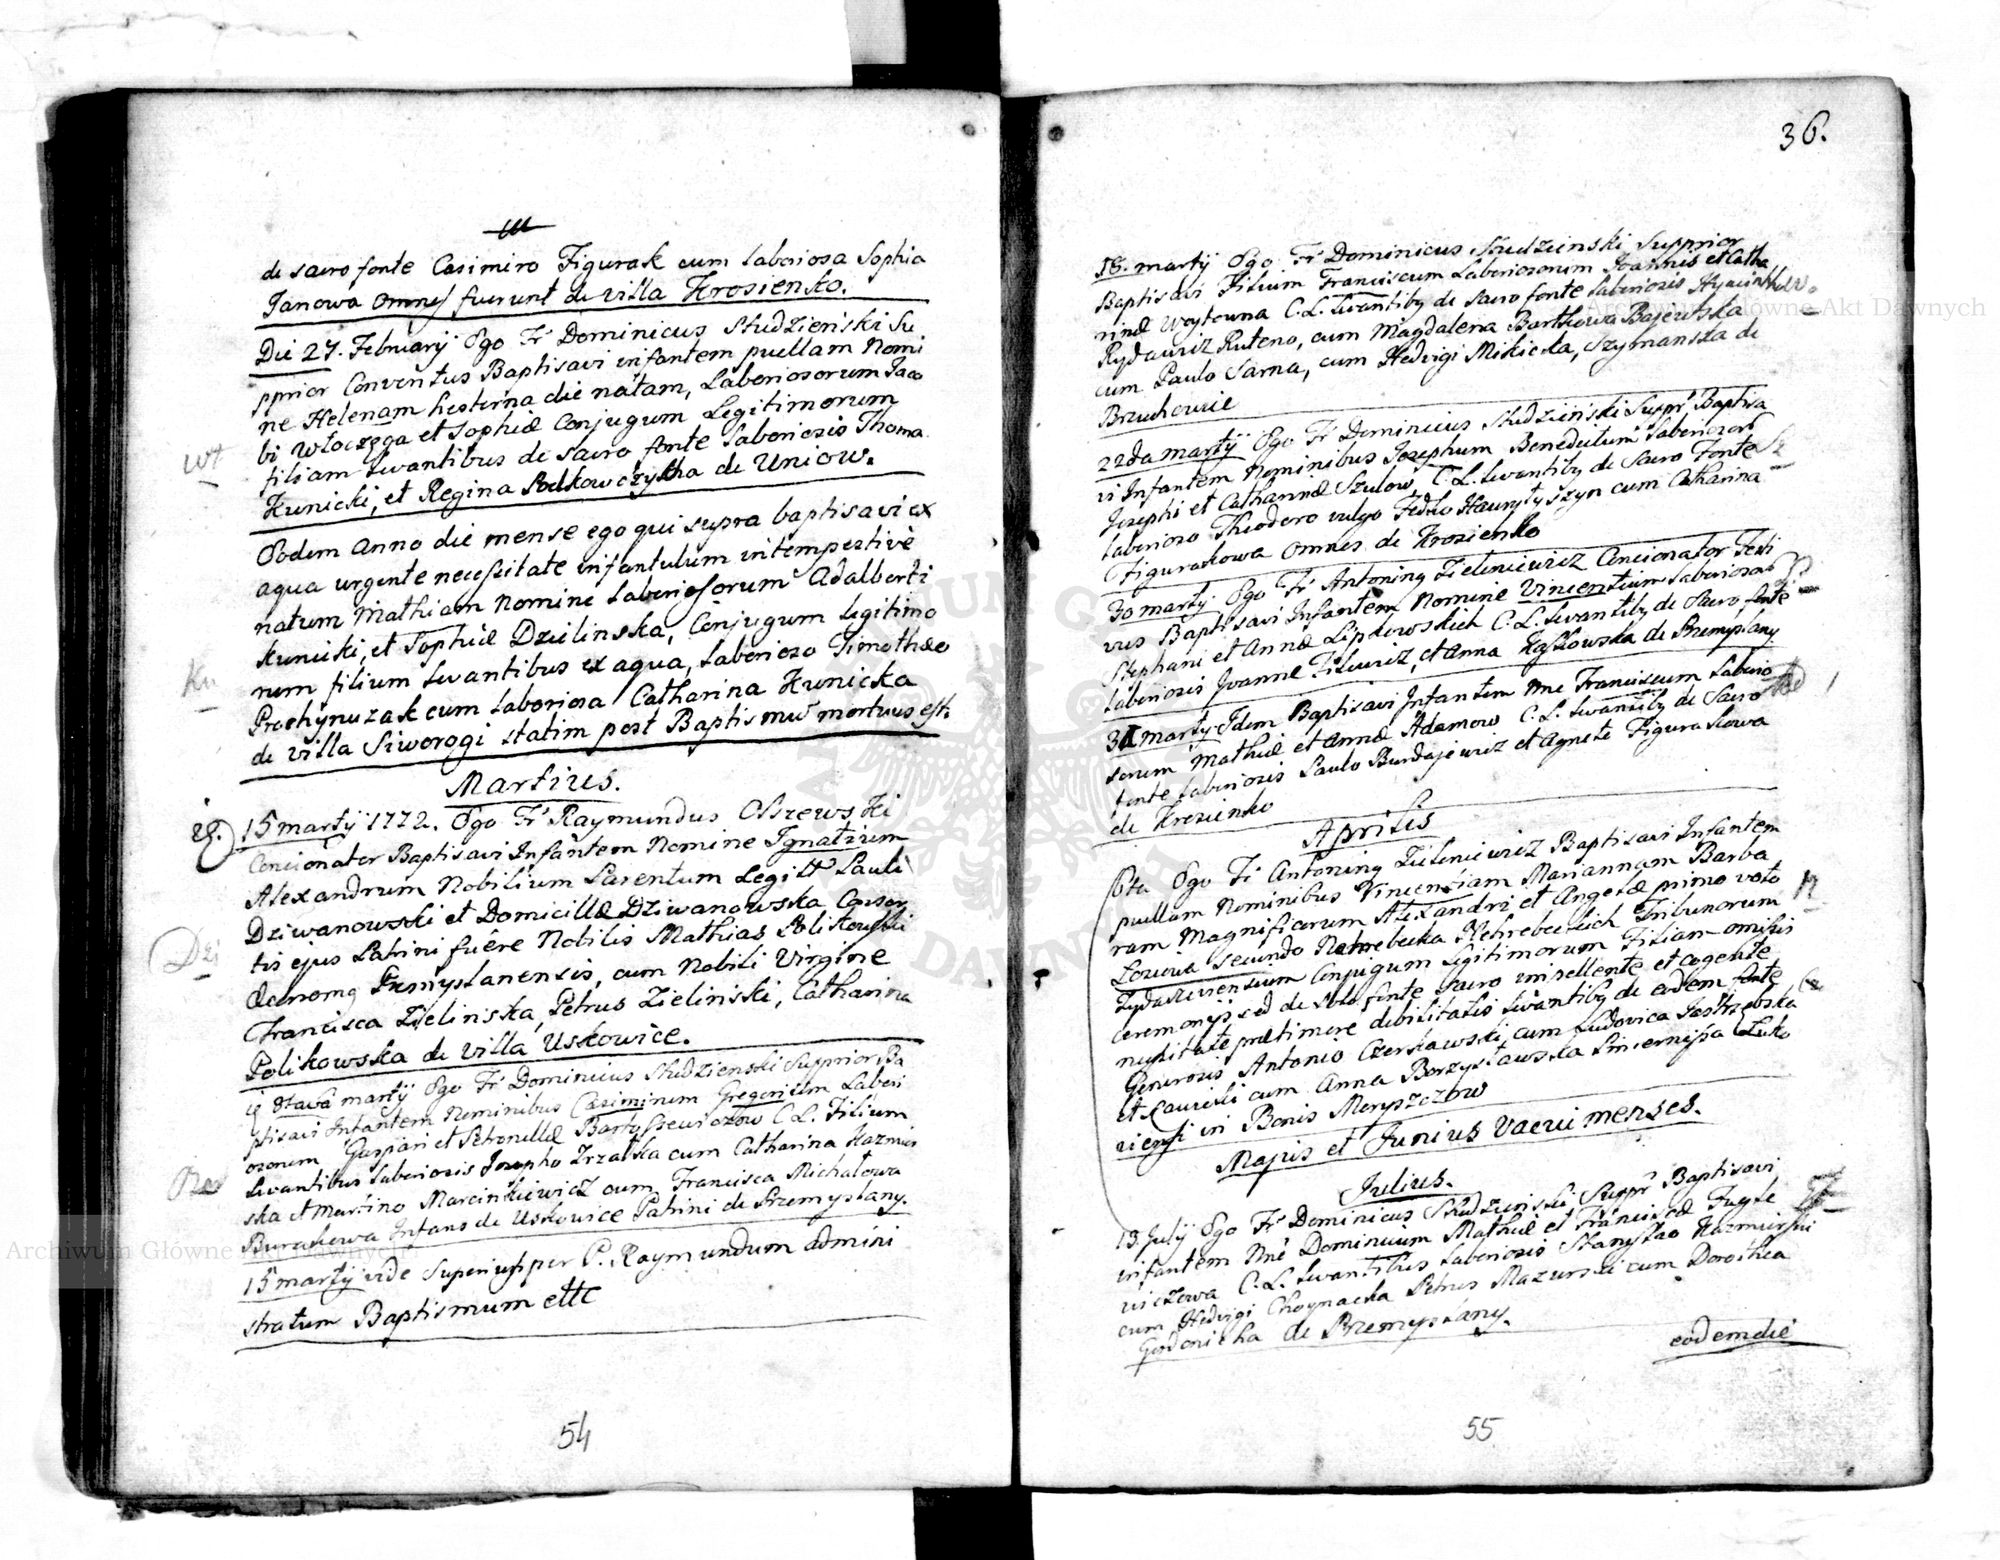 de sacro fonte Casimiro Figurak cum laboriosa Sophia
Janowa omnes fuerunt de villa Krosienko.
Die 27. February Ego Fr Dominicus Studzieński Su
pprior Conventus Baptisavi infantem puellam Nomi
ne Helenam hesterna die natam, Laboriosorum Jaco
bi Włoczęga et Sophiæ Conjugum Legitimorum
filiam levantibus de sacro fonte Laboriosis Thoma
Kunicki, et Regina Podkowczyska de Uniow.
Eodem Anno die mense ego qui supra baptisavi ex
aqua urgente necessitate infantulum intempestivè
natum Mathiam Nomine Laboriosorum Adalberti
Kunicki, et Sophiæ Dzielinska, Conjugum legitimo
rum filium levantibus ex aqua, laborioso Timothæo
Prochynuzak cum laboriosa Catharina Kunicka
de villa Siworogi statim post Baptismũ mortuus est.
Martius.
15 martij 1772. Ego Fr Raymundus Olszewski
Concionator Baptisavi Infantem Nomine Ignatium
Alexandrum Nobilium Parentum Legitt Pauli
Dziwanowski et Domicillæ Dziwanowska Consor
tis ejus Patrini fuêre Nobilis Mathias Polikowski
Præmyslanensis, cum Nobili Virgine
Francisca Zielinska, Petrus Zielinski, Catharina
Polikowska de villa Uskowice.
Octava martij Ego Fr Dominicus Studzienski Supprior Ba
ptisavi Infantem Nominibus Casimirum Gregorium Labori
osorum Gaspari et Petronellæ Bartossewiczow C. L. Filium
Levantibus Laboriosis Josepho Trzaska cum Catharina Kazmir
ska et Martino Marcinkiewicz cum Francisca Michałowa
Burakowa Infans de Uskowice Patrini de Przemyslany.
15 martij vide Superius per P. Raymundum admini
stratum Baptismum ettc
54
36.
18. martij Ego Fr Dominicus Studzienski Supprior
Baptisavi Filium Franciscum Laboriosorum Joannis et Catha
rinæ Woytowna C. L. levantibg de Sacro fonte laboriosis Hyacintho
Rydawicz Ruteno, cum Magdalena Bartkowa Bajewska
cum Paulo Sarna, cum Hedvigi Mikicka, Szymanska de
Brzuchowice
22da martij Ego Fr Dominicus Studziński Suppr Baptisa
vi Infantem Nominibus Josephum Benedictum Laboriosor
Josephi et Catharinæ Szulow, C. L. levantibg de Sacro Fonte
Laborioso Theodoro vulgo Fedko Hawryłyszyn cum Catharina
Figurakowa omnes de Krosienko
30 martij. Ego Fr Antoning Zieleniewicz Concionator Festi
vus Baptisavi Infantem Nomine Vincentium Laboriosor
Stephani et Annæ Lipkowskich C. L. levantibg de Sacro fonte
laboriosis Joanne Zilewicz, et Anna Kozłowska de Premyslany
31 martij Idem Baptisavi Infantem Nne Franciscum Laborio
sorum Mathiæ et Annæ Adamow C. L. levantibg de Sacro
fonte laboriosis Paulo Burdajewicz et Agnete Figurakowa
de Krosienko
Aprilis
Ego Fr Antoning Zieleniewicz Baptisavi Infantem
puellam Nominibus Vincentiam Mariannam Barba
ram Magnificorum Alexandri et Angelæ primo voto
secundo Nietrebecka Nietrebeckich Tribunorum
Conjugum Legitimorum Filiam omissis
ceremonijs sed de solo fonte sacro
Generosis Antonio Czerkawski, cum Ludovica Jastrzębska
cum Anna Borzysławska
in Bonis Meryszczow
Majus et Junius Vacui menses.
Julius.
13. July Ego Fr Dominicus Studzienski Suppr Baptisavi
infantem Nne Dominicum Mathiæ et Franciscæ
C. L. levantibus laboriosis Stanysłao Kazmirski
cum Hedvigi Choynacka Petrus Mazurski cum Dorothea
de Przemyslany.
eodem die
55
Archiwum Główne Akt Dawnych
Archiwum Główne Akt Dawnych